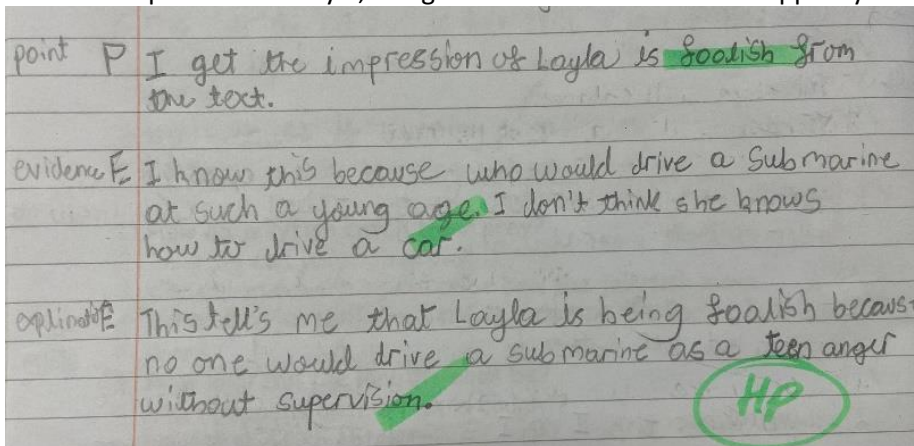 point P I get the impression of Layla is foolish from
the text.
evidence E I know this because who would drive a Submarine
at such a young age. I don't think she knows
how to drive a car.
explinatio E This tell's me that Layla is being foolish becaus
no one would drive a submarine as a teen anger
without supervision.
HP